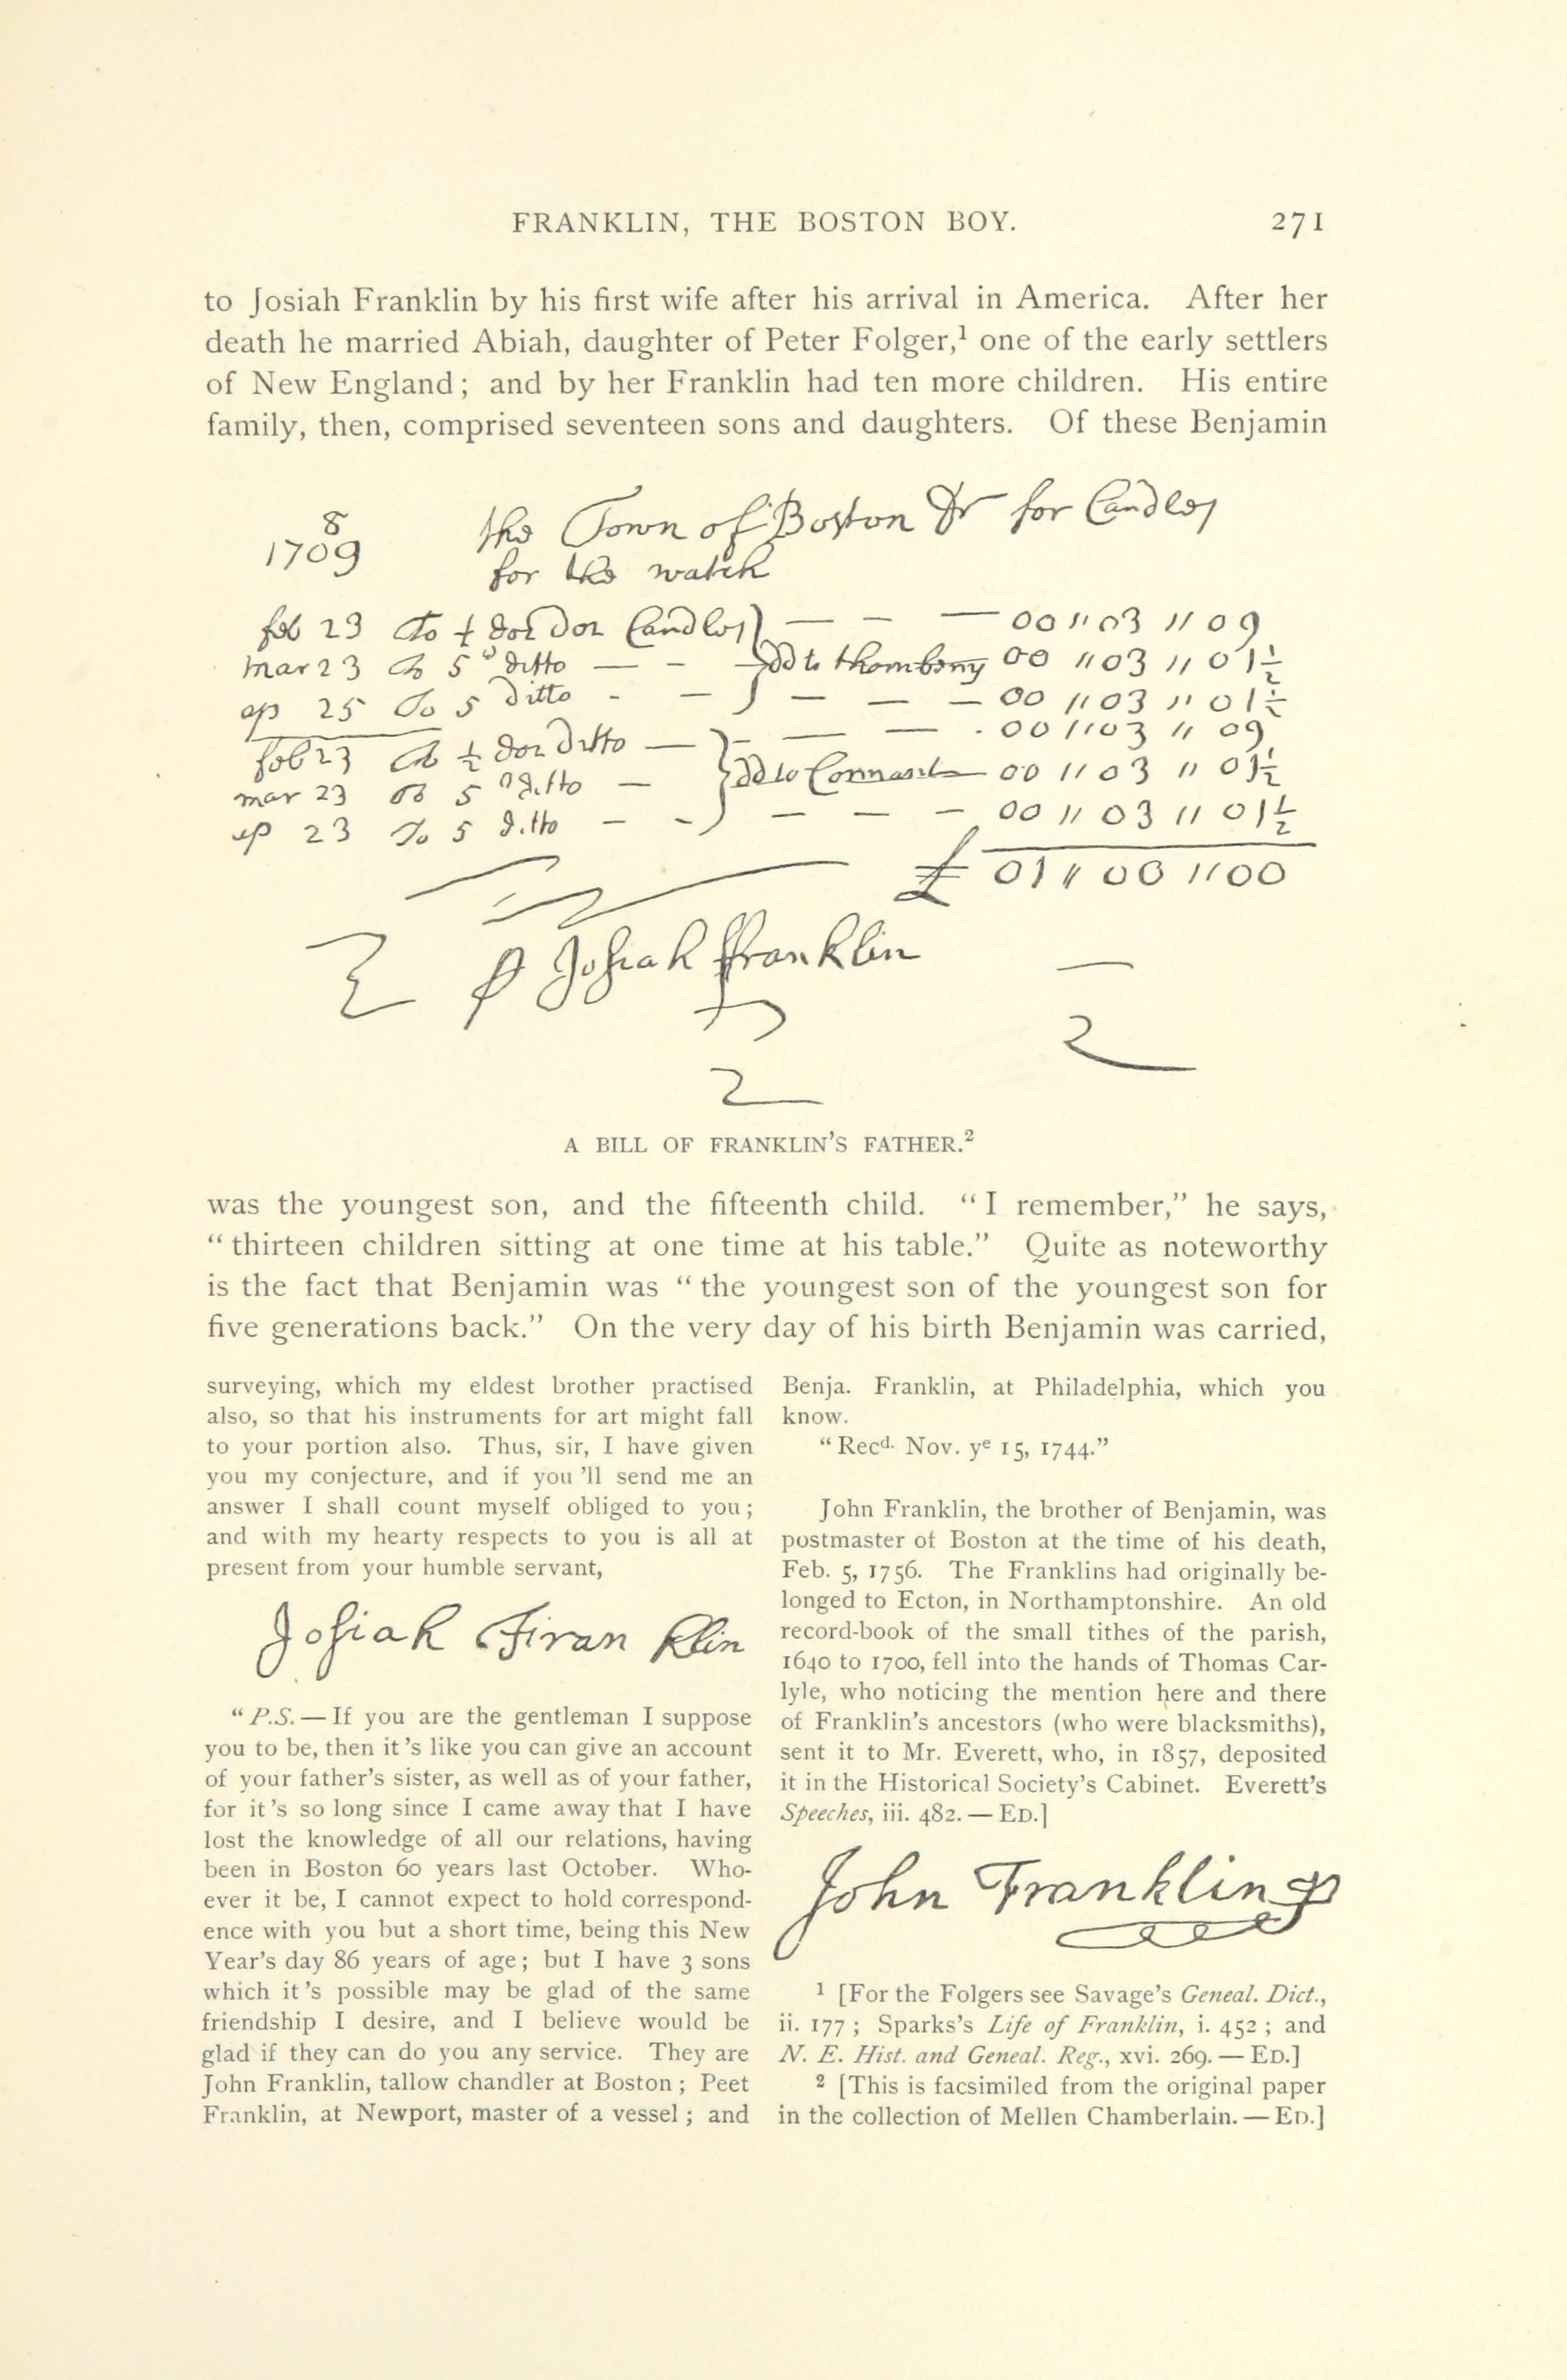 FRANKLIN, THE BOSTON BOY. 271
to Josiah Franklin by his first wife after his arrival in America. After her
death he married Abiah, daughter of Peter Folger,¹ one of the early settlers
of New England; and by her Franklin had ten more children. His entire
family, then, comprised seventeen sons and daughters. Of these Benjamin
8
1709
the Town of Boston Dr for Candles
for the watch
feb 23 To ½ doz Candles — — — 00 〃 03 〃 09
mar 23 To 5 ditto — - dd to 00 〃 03 〃 01½
ap 25 To 5 ditto - — — — — 00 〃 03 〃 01½
feb 23 To ½ doz ditto — - — — - 00 〃 03 〃 09
mar 23 To 5 ditto — dd to 00 〃 03 〃 01½
ap 23 To 5 ditto — - — — — 00 〃 03 〃 01½
£ 01 〃 00 〃 00
⅌ Josiah Franklin
A BILL OF FRANKLIN'S FATHER.²
was the youngest son, and the fifteenth child. "I remember," he says,
"thirteen children sitting at one time at his table." Quite as noteworthy
is the fact that Benjamin was "the youngest son of the youngest son for
five generations back." On the very day of his birth Benjamin was carried,
surveying, which my eldest brother practised
also, so that his instruments for art might fall
to your portion also. Thus, sir, I have given
you my conjecture, and if you 'll send me an
answer I shall count myself obliged to you;
and with my hearty respects to you is all at
present from your humble servant,
Josiah Franklin
"P.S. — If you are the gentleman I suppose
you to be, then it's like you can give an account
of your father's sister, as well as of your father,
for it's so long since I came away that I have
lost the knowledge of all our relations, having
been in Boston 60 years last October. Who-
ever it be, I cannot expect to hold correspond-
ence with you but a short time, being this New
Year's day 86 years of age; but I have 3 sons
which it's possible may be glad of the same
friendship I desire, and I believe would be
glad if they can do you any service. They are
John Franklin, tallow chandler at Boston; Peet
Franklin, at Newport, master of a vessel; and
Benja. Franklin, at Philadelphia, which you
know.
"Recd. Nov. ye 15, 1744."
John Franklin, the brother of Benjamin, was
postmaster of Boston at the time of his death,
Feb. 5, 1756. The Franklins had originally be-
longed to Ecton, in Northamptonshire. An old
record-book of the small tithes of the parish,
1640 to 1700, fell into the hands of Thomas Car-
lyle, who noticing the mention here and there
of Franklin's ancestors (who were blacksmiths),
sent it to Mr. Everett, who, in 1857, deposited
it in the Historical Society's Cabinet. Everett's
Speeches, iii. 482. — ED.]
John Franklin
¹ [For the Folgers see Savage's Geneal. Dict.,
ii. 177; Sparks's Life of Franklin, i. 452; and
N. E. Hist. and Geneal. Reg., xvi. 269. — ED.]
² [This is facsimiled from the original paper
in the collection of Mellen Chamberlain. — ED.]